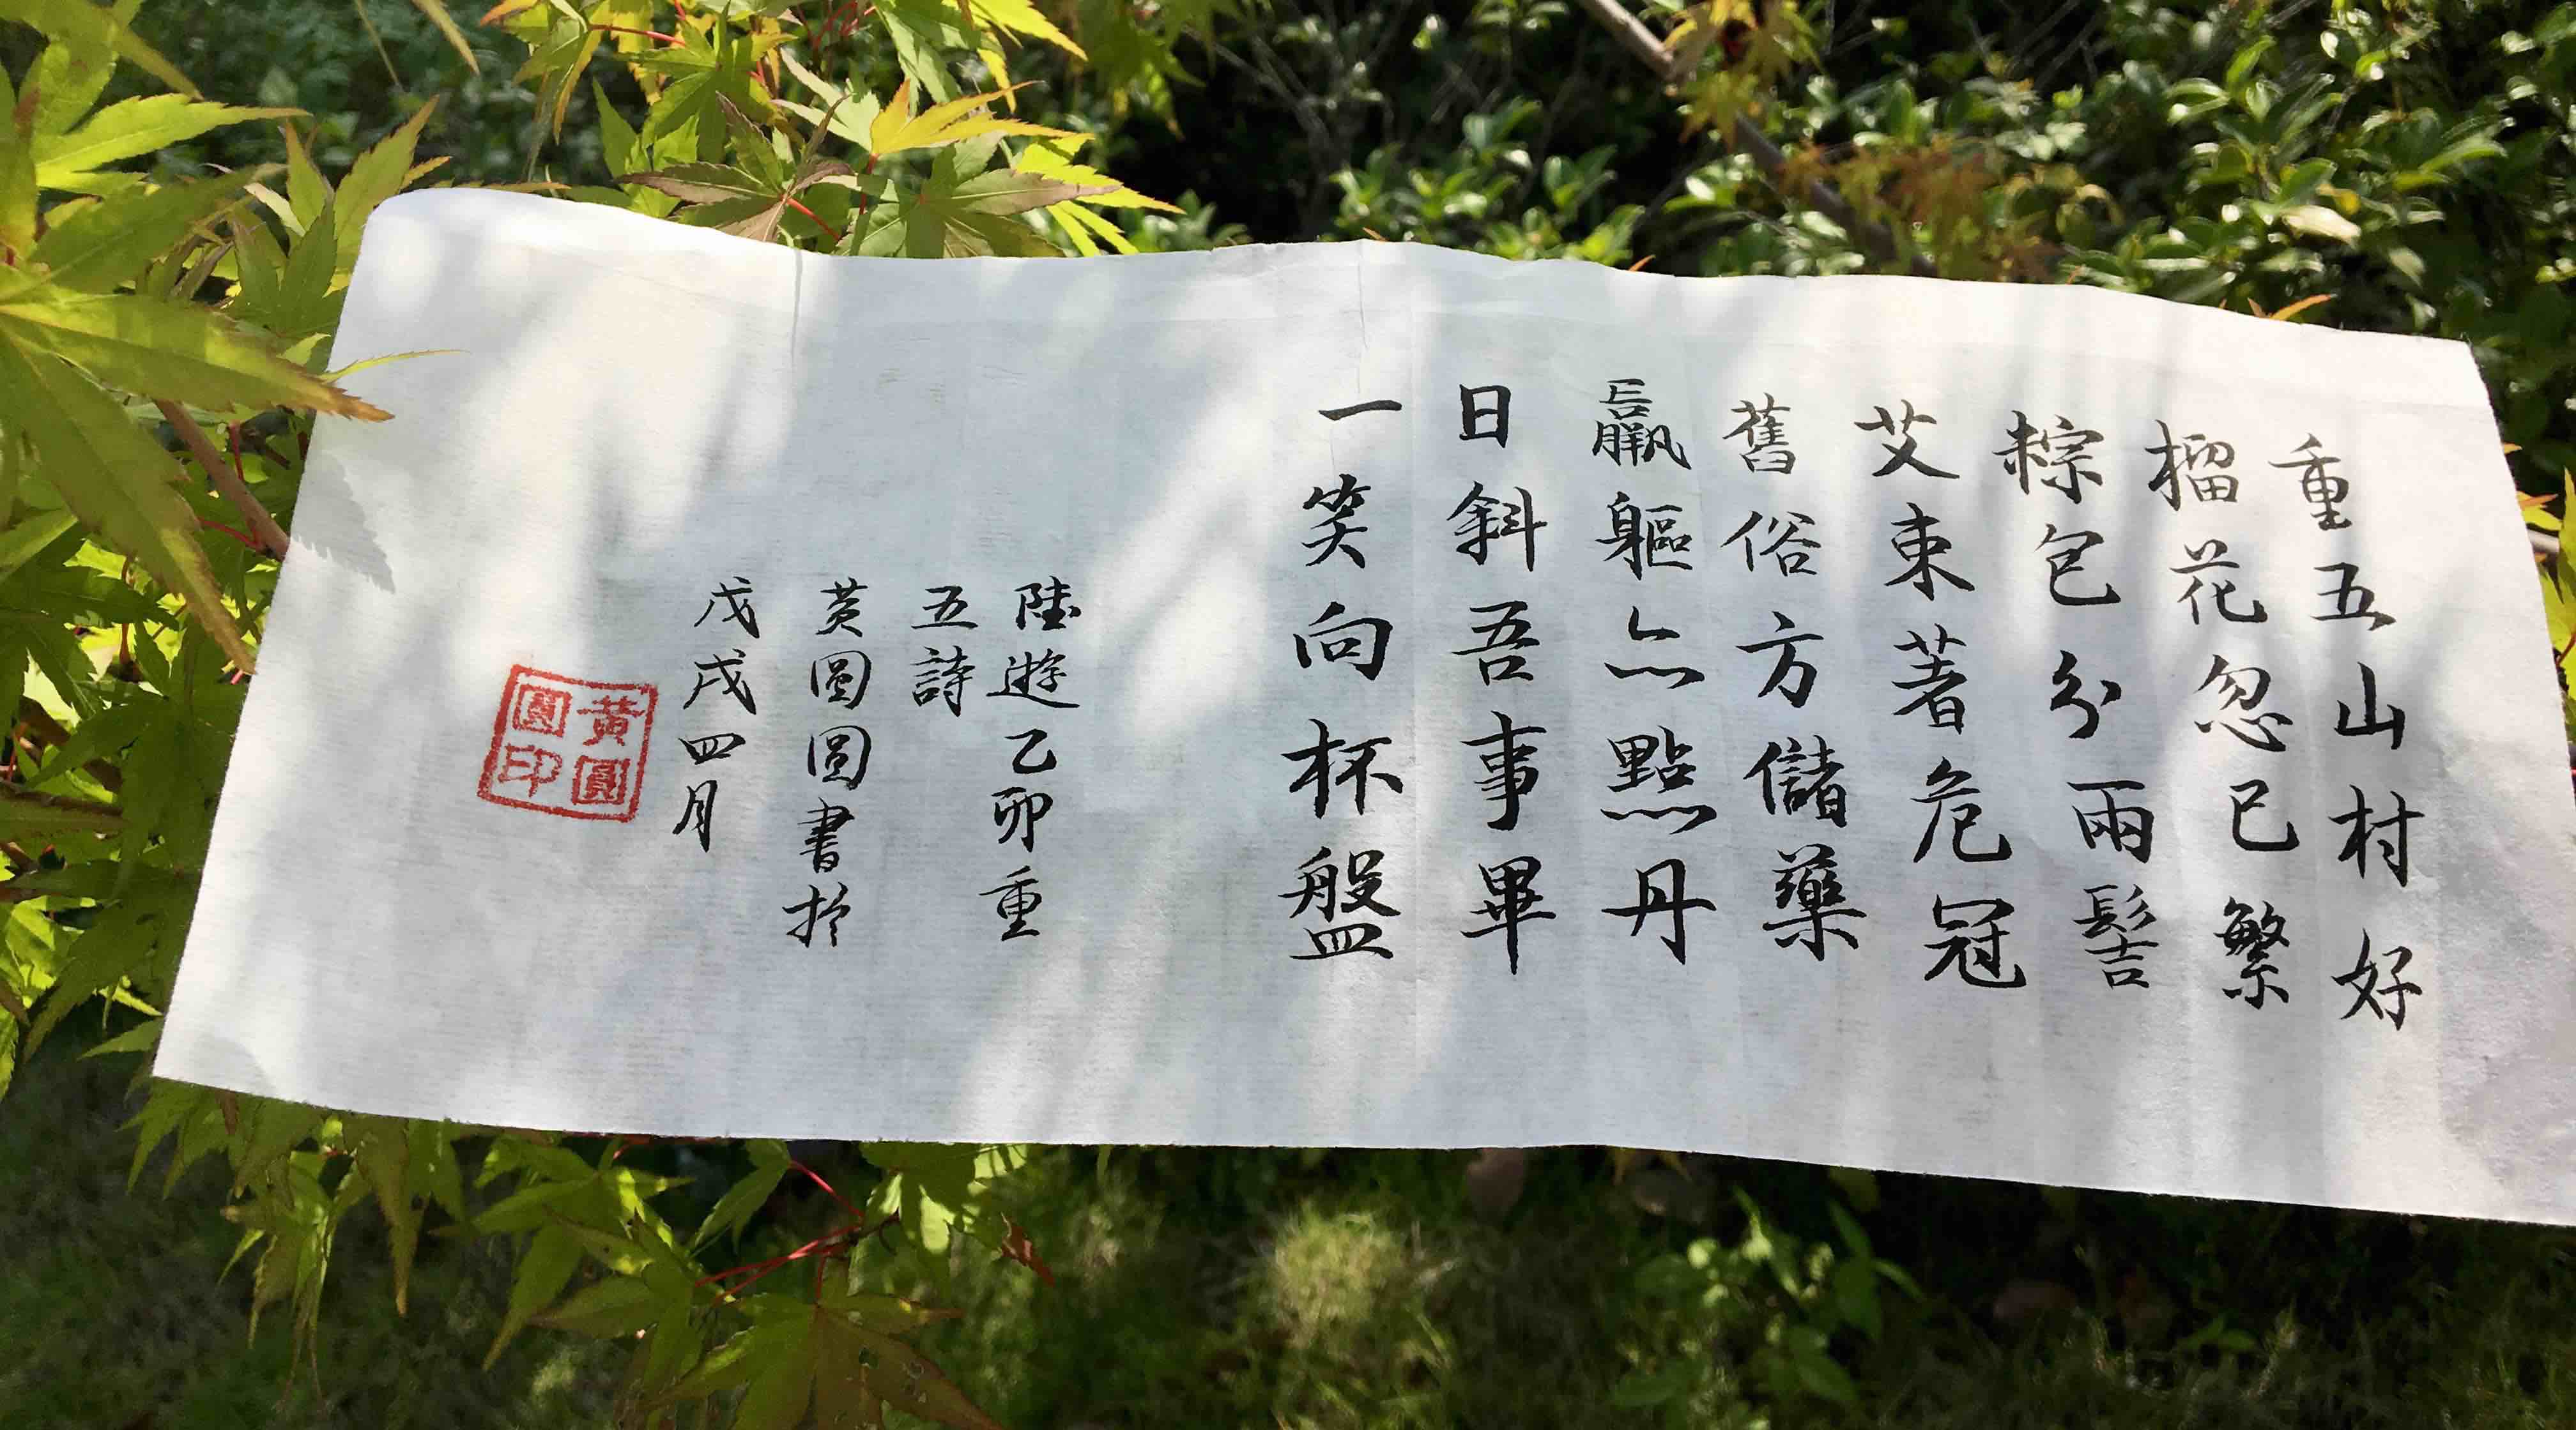 重五山村好
榴花忽已繁
粽包分兩髻
艾束著危冠
舊俗方儲藥
羸軀亦點丹
日斜吾事畢
一笑向杯盤
陸遊乙卯重
五詩
黃圓圓書於
戊戌四月
黃圓
圓印